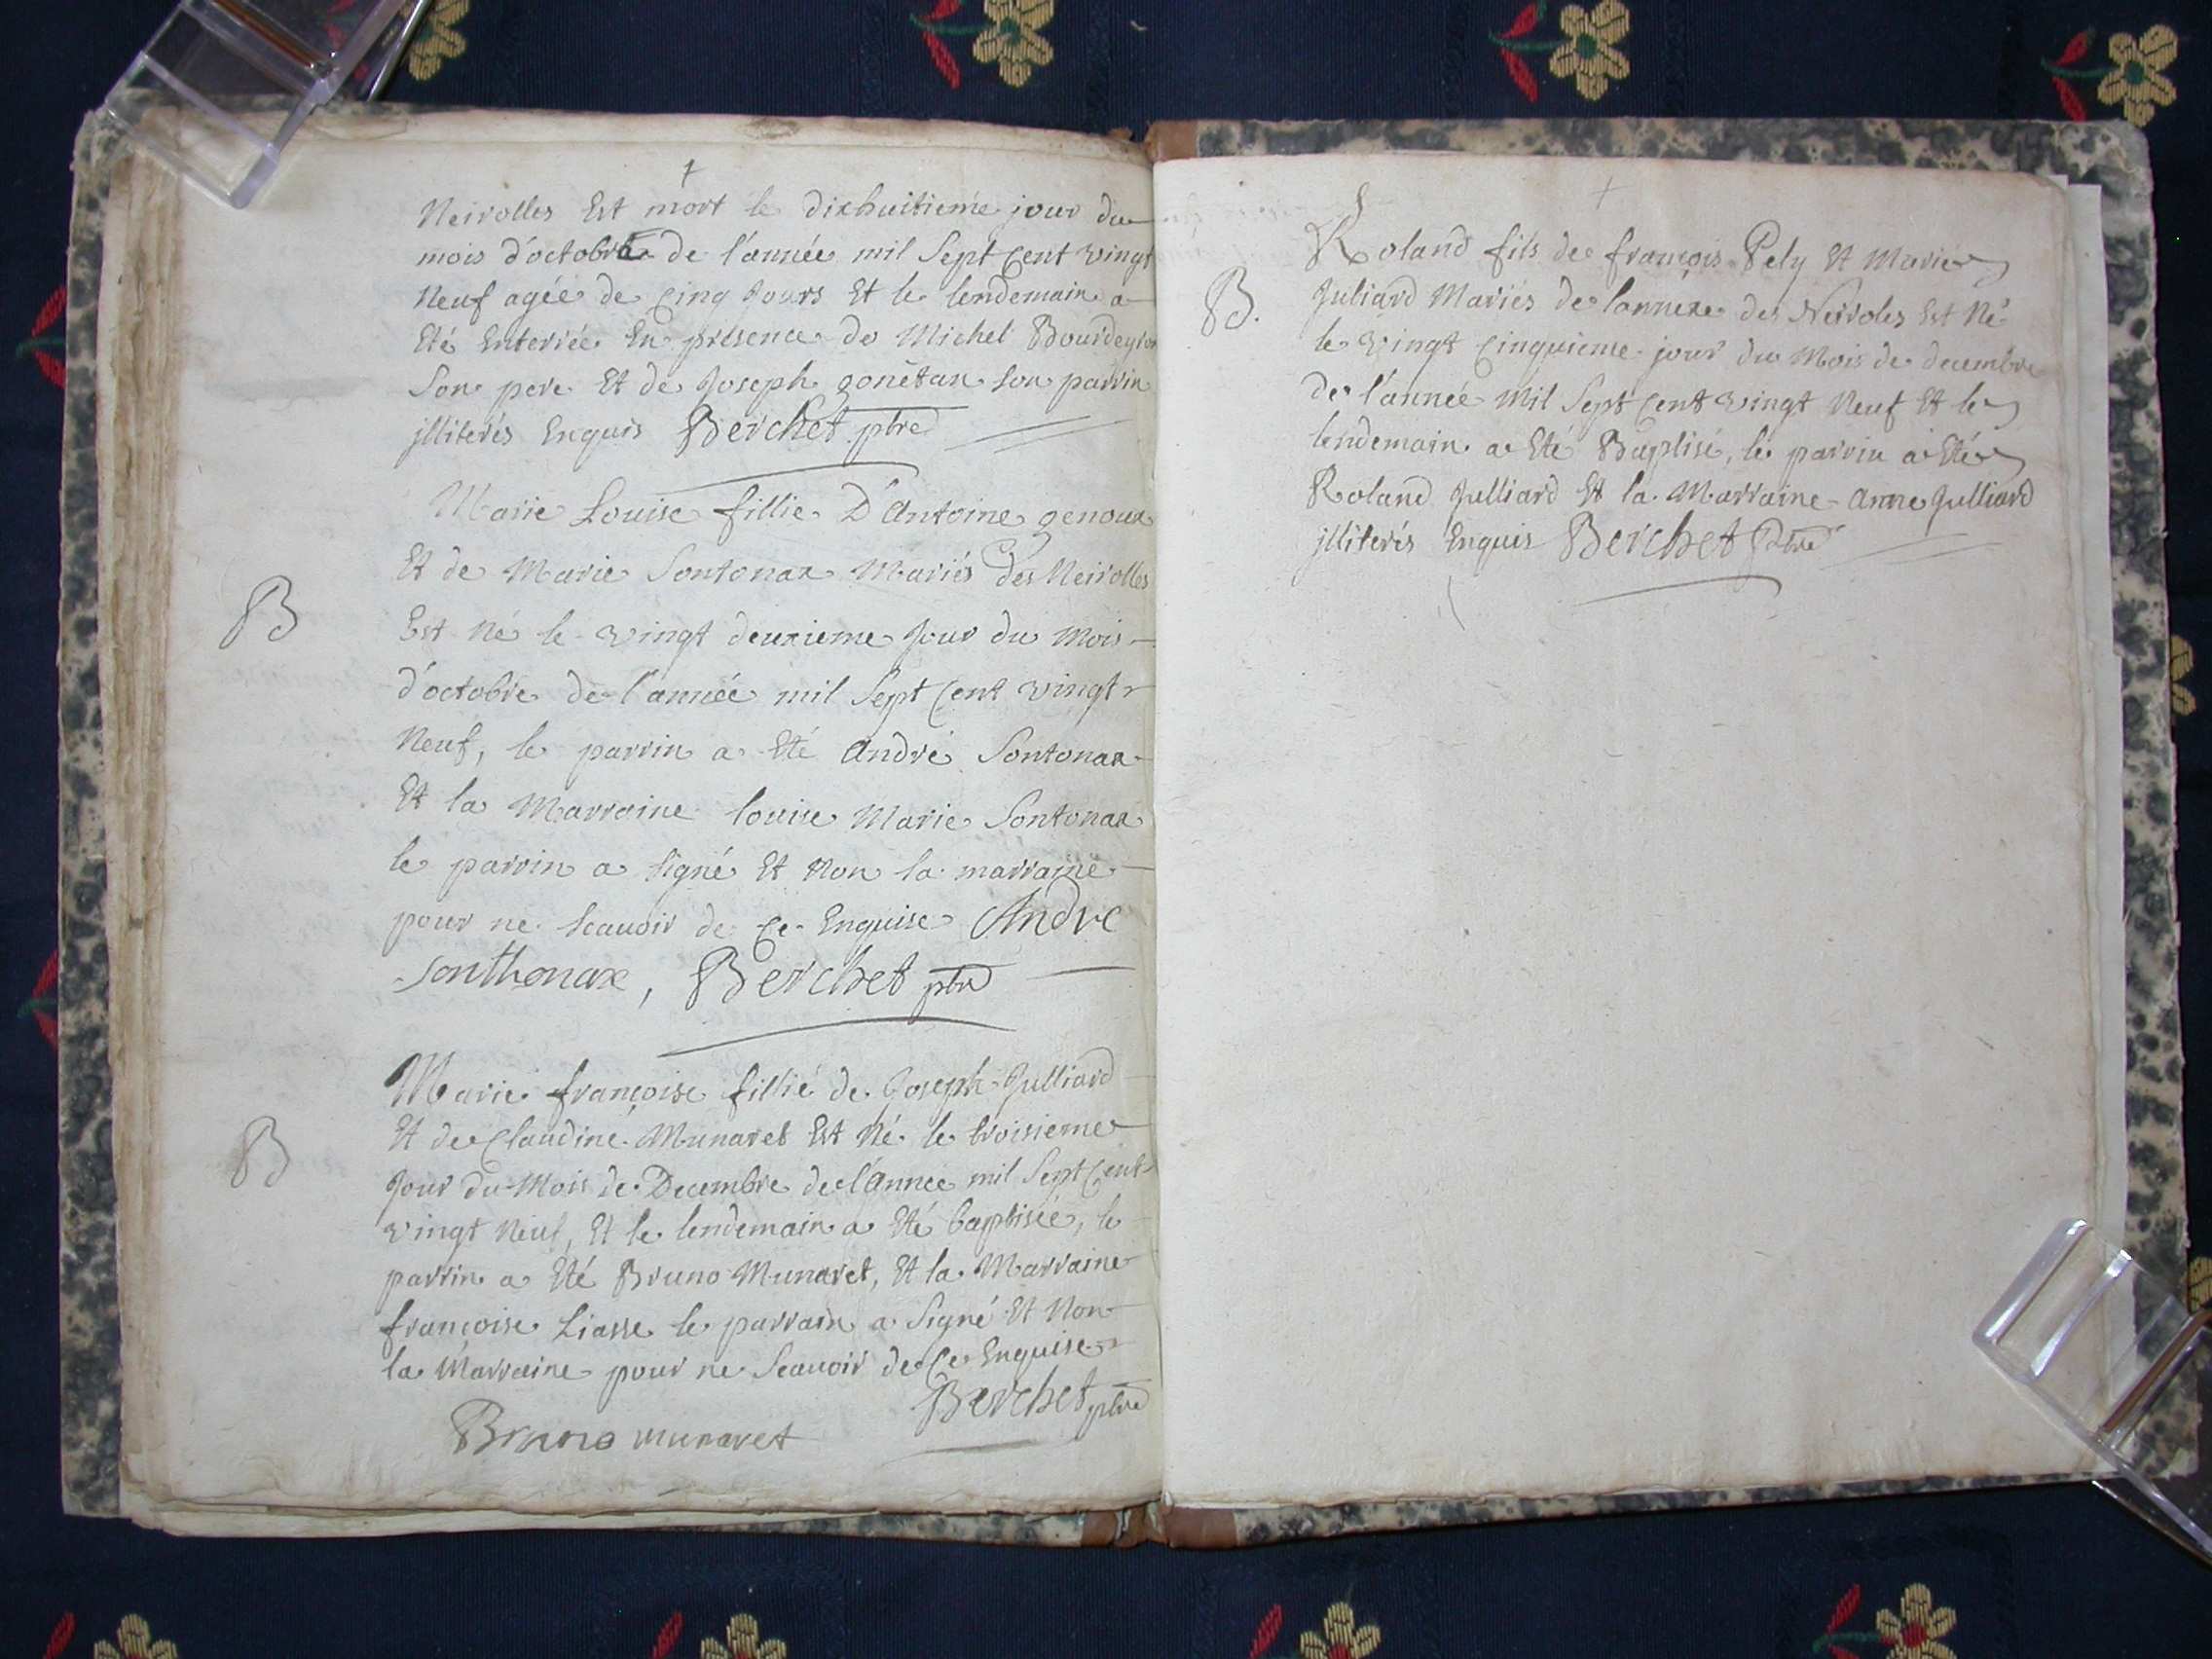 Neirolles Est mort le dixhuitieme jour du
mois d'octobre de l'année mil Sept Cent vingt
Neuf agée de Cinq Jours Et le lendemain a
Eté Enterrée En présence de Michel Bourdeyron
Son pere Et de Joseph gonétan son parrin
jlliterés Enquis Berchet ptre
Marie Louise fillie D'Antoine genoux
Et de Marie Sontonax Mariés des Neirolles
B
Est né le vingt deuxieme Jour du Mois
d'octobre de l'année mil Sept Cent vingt
Neuf, le parrin a Eté André Sontonax
Et la Marraine louise Marie Sontonax
le parrin a signé Et Non la marraine
pour ne Scauoir de Ce Enquise Andre
Sonthonax, Berchet ptre
Marie françoise fillié de Joseph Julliard
B
Et de Claudine Munaret Est Né le troisieme
Jour du Mois de Decembre de l'année mil Sept Cent
vingt Neuf, Et le lendemain a Eté baptisée, le
parrin a Eté Bruno Munaret, Et la Marraine
françoise Liasse le parrain a Signé Et Non
la Marraine pour ne Scauoir de Ce Enquise
Berchet ptre
Bruno munaret
Roland fils de françois Pely Et Marie
B.
Juliard Mariés de lannexe des Neiroles Est Né
le vingt Cinquieme jour du Mois de decembre
de l'année Mil Sept Cent vingt Neuf Et le
lendemain a Eté Baptisé, le parrin a Eté
Roland Julliard Et la Marraine Anne Julliard
jlliterés Enquis Berchet Ptre